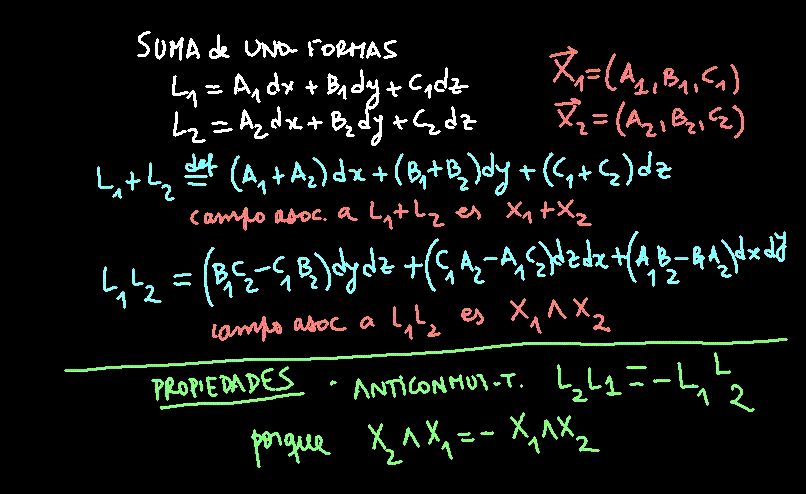 SUMA de UNO-FORMAS
L₁ = A₁dx + B₁dy + C₁dz
L₂ = A₂dx + B₂dy + C₂dz
X⃗₁ = (A₁, B₁, C₁)
X⃗₂ = (A₂, B₂, C₂)
L₁+L₂ def= (A₁+A₂)dx + (B₁+B₂)dy + (C₁+C₂)dz
campo asoc. a L₁+L₂ es X₁+X₂
L₁L₂ = (B₁C₂-C₁B₂)dydz + (C₁A₂-A₁C₂)dzdx + (A₁B₂-B₁A₂)dxdy
campo asoc a L₁L₂ es X₁∧X₂
PROPIEDADES · ANTICONMUT-T. L₂L₁ = -L₁L₂
porque X₂∧X₁ = - X₁∧X₂